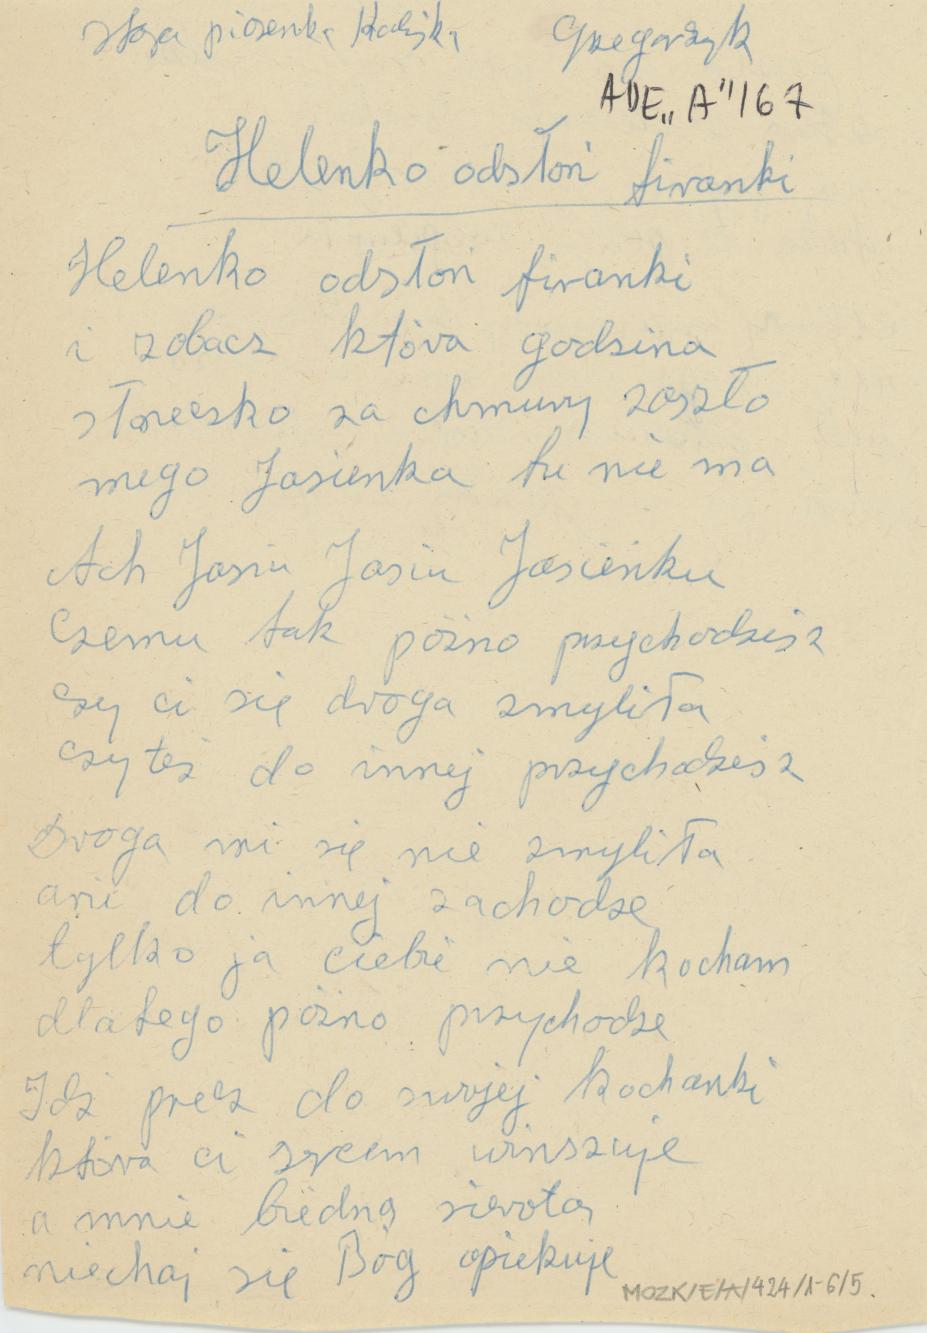 stara piosenka Grzegorzyk
ADE „A"/67
Helenko odsłoń firanki
Helenko odsłoń firanki
i zobacz która godzina
słoneczko za chmury zaszło
mego Jasieńka tu nie ma
Ach Jasiu Jasiu Jasieńku
Czemu tak późno przychodzisz
czy ci się droga zmyliła
czy też do innej przychodzisz
Droga mi się nie zmyliła
ani do innej zachodzę
tylko ja ciebie nie kocham
dlatego późno przychodzę
Idź precz do swojej kochanki
która ci sercem winszuje
a mnie biedną sierotą
niechaj się Bóg opiekuje
MOZK/E/A/424/1-6/5.